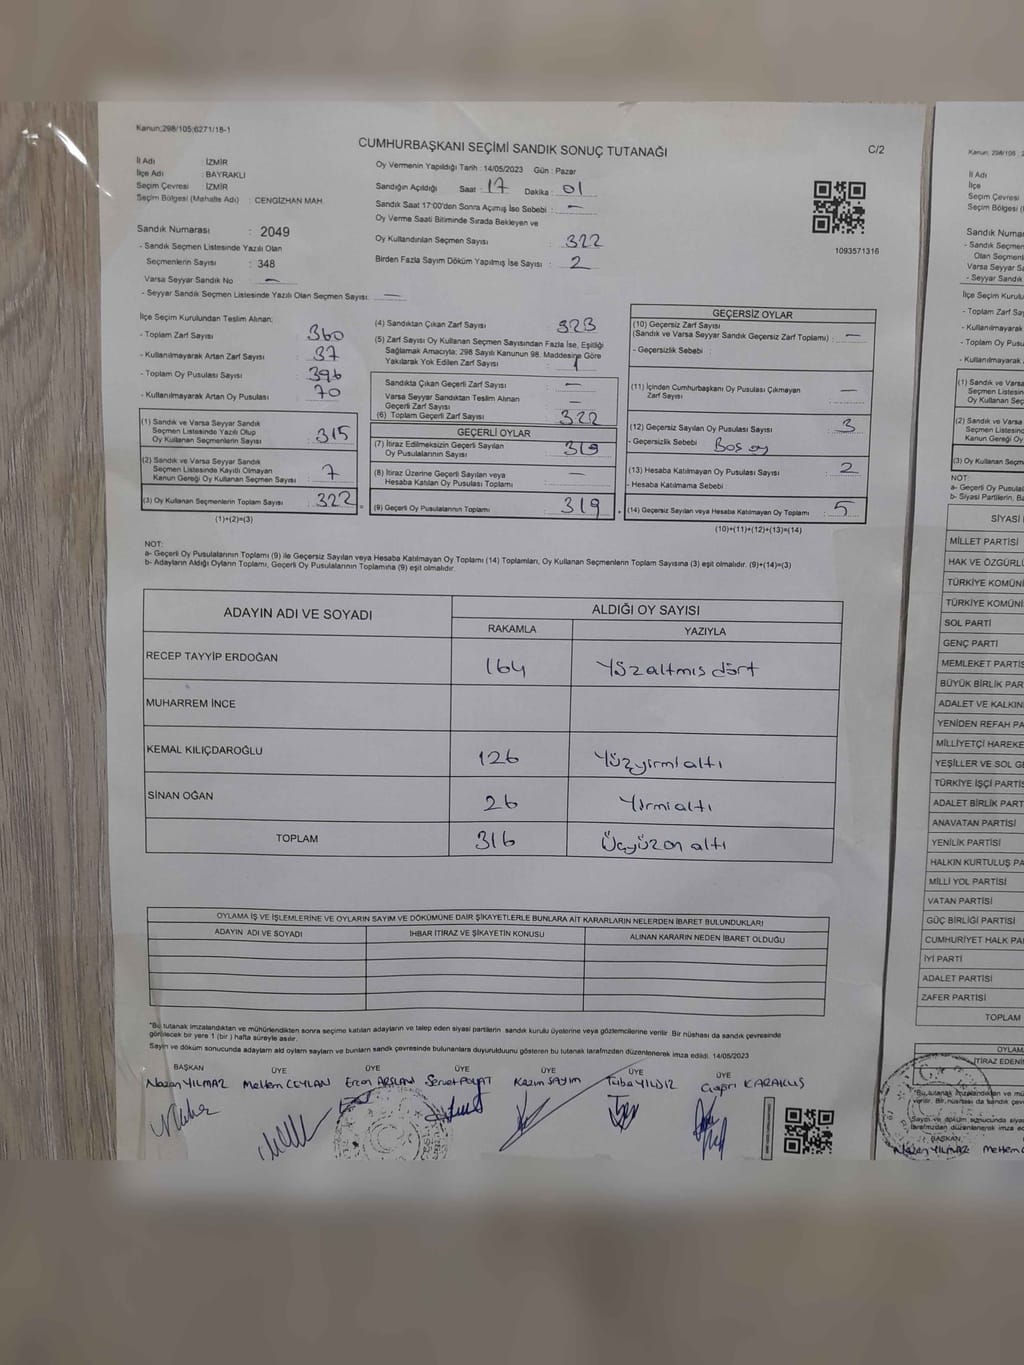 Kanun;298/105;6271/18-1
CUMHURBAŞKANI SEÇİMİ SANDIK SONUÇ TUTANAĞI
C/2
İl Adı : İZMİR
İlçe Adı : BAYRAKLI
Seçim Çevresi : İZMİR
Seçim Bölgesi (Mahalle Adı) : CENGİZHAN MAH.
Sandık Numarası : 2049
- Sandık Seçmen Listesinde Yazılı Olan
Seçmenlerin Sayısı : 348
Varsa Seyyar Sandık No : —
- Seyyar Sandık Seçmen Listesinde Yazılı Olan Seçmen Sayısı: —
Oy Vermenin Yapıldığı Tarih : 14/05/2023 Gün : Pazar
Sandığın Açıldığı Saat : 17 Dakika : 01
Sandık Saat 17:00'den Sonra Açımış İse Sebebi : —
Oy Verme Saati Bitiminde Sırada Bekleyen ve
Oy Kullandırılan Seçmen Sayısı : 322
Birden Fazla Sayım Döküm Yapılmış İse Sayısı : 2
1093571316
İlçe Seçim Kurulundan Teslim Alınan;
- Toplam Zarf Sayısı : 360
- Kullanılmayarak Artan Zarf Sayısı : 37
- Toplam Oy Pusulası Sayısı : 396
- Kullanılmayarak Artan Oy Pusulası : 70
(1) Sandık ve Varsa Seyyar Sandık
Seçmen Listesinde Yazılı Olup
Oy Kullanan Seçmenlerin Sayısı : 315
(2) Sandık ve Varsa Seyyar Sandık
Seçmen Listesinde Kayıtlı Olmayan
Kanun Gereği Oy Kullanan Seçmen Sayısı : 7
(3) Oy Kullanan Seçmenlerin Toplam Sayısı : 322
(1)+(2)=(3)
(4) Sandıktan Çıkan Zarf Sayısı : 323
(5) Zarf Sayısı Oy Kullanan Seçmen Sayısından Fazla İse, Eşitliği
Sağlamak Amacıyla; 298 Sayılı Kanunun 98. Maddesine Göre
Yakılarak Yok Edilen Zarf Sayısı : 1
Sandıkta Çıkan Geçerli Zarf Sayısı : —
Varsa Seyyar Sandıktan Teslim Alınan
Geçerli Zarf Sayısı : —
(6) Toplam Geçerli Zarf Sayısı : 322
GEÇERLİ OYLAR
(7) İtiraz Edilmeksizin Geçerli Sayılan
Oy Pusulalarının Sayısı : 319
(8) İtiraz Üzerine Geçerli Sayılan veya
Hesaba Katılan Oy Pusulası Toplamı : —
(9) Geçerli Oy Pusulalarının Toplamı : 319
GEÇERSİZ OYLAR
(10) Geçersiz Zarf Sayısı
(Sandık ve Varsa Seyyar Sandık Geçersiz Zarf Toplamı) : —
- Geçersizlik Sebebi :
(11) İçinden Cumhurbaşkanı Oy Pusulası Çıkmayan
Zarf Sayısı : —
(12) Geçersiz Sayılan Oy Pusulası Sayısı : 3
- Geçersizlik Sebebi : Bos oy
(13) Hesaba Katılmayan Oy Pusulası Sayısı : 2
- Hesaba Katılmama Sebebi :
(14) Geçersiz Sayılan veya Hesaba Katılmayan Oy Toplamı : 5
(10)+(11)+(12)+(13)=(14)
NOT:
a- Geçerli Oy Pusulalarının Toplamı (9) ile Geçersiz Sayılan veya Hesaba Katılmayan Oy Toplamı (14) Toplamları, Oy Kullanan Seçmenlerin Toplam Sayısına (3) eşit olmalıdır. (9)+(14)=(3)
b- Adayların Aldığı Oyların Toplamı, Geçerli Oy Pusulalarının Toplamına (9) eşit olmalıdır.
ADAYIN ADI VE SOYADI ALDIĞI OY SAYISI
RAKAMLA YAZIYLA
RECEP TAYYİP ERDOĞAN 164 Yüzaltmıs dört
MUHARREM İNCE
KEMAL KILIÇDAROĞLU 126 Yüzyirmialtı
SİNAN OĞAN 26 Yirmialtı
TOPLAM 316 Üçyüzon altı
OYLAMA İŞ VE İŞLEMLERİNE VE OYLARIN SAYIM VE DÖKÜMÜNE DAİR ŞİKAYETLERLE BUNLARA AİT KARARLARIN NELERDEN İBARET BULUNDUKLARI
ADAYIN ADI VE SOYADI İHBAR İTİRAZ VE ŞİKAYETİN KONUSU ALINAN KARARIN NEDEN İBARET OLDUĞU
*Bu tutanak imzalandıktan ve mühürlendikten sonra seçime katılan adayların ve talep eden siyasi partilerin sandık kurulu üyelerine veya gözlemcilerine verilir. Bir nüshası da sandık çevresinde
görülecek bir yere 1 (bir) hafta süreyle asılır.
Sayım ve döküm sonucunda adayların aldı oyların sayların ve bunların sandık çevresinde bulunanlara duyurulduunu gösteren bu tutanak tarafımızdan düzenlenerek imza edildi. 14/05/2023
BAŞKAN ÜYE ÜYE ÜYE ÜYE ÜYE ÜYE
Nazan YILMAZ Meltem CEYLAN Ercan ARSLAN Servet POLAT Kazım SAYIM Tuba YILDIZ KARAKUŞ
Kanun; 298/105
İl Adı
İlçe
Seçim Çevresi
Seçim Bölgesi
Sandık Numaras
- Sandık Seçmen
NOT:
SİYASİ
MİLLET PARTİSİ
HAK VE ÖZGÜRL
TÜRKİYE KOMÜNİ
TÜRKİYE KOMÜNİ
SOL PARTİ
GENÇ PARTİ
MEMLEKET PARTİS
BÜYÜK BİRLİK PAR
ADALET VE KALKIN
YENİDEN REFAH PA
MİLLİYETÇİ HAREKE
YEŞİLLER VE SOL GE
TÜRKİYE İŞÇİ PARTİS
ADALET BİRLİK PART
ANAVATAN PARTİSİ
YENİLİK PARTİSİ
HALKIN KURTULUŞ PA
MİLLİ YOL PARTİSİ
VATAN PARTİSİ
GÜÇ BİRLİĞİ PARTİSİ
CUMHURİYET HALK PA
İYİ PARTİ
ADALET PARTİSİ
ZAFER PARTİSİ
TOPLAM
OYLAMA
İTİRAZ EDENİ
BAŞKAN
Nazan YILMAZ Meltem C